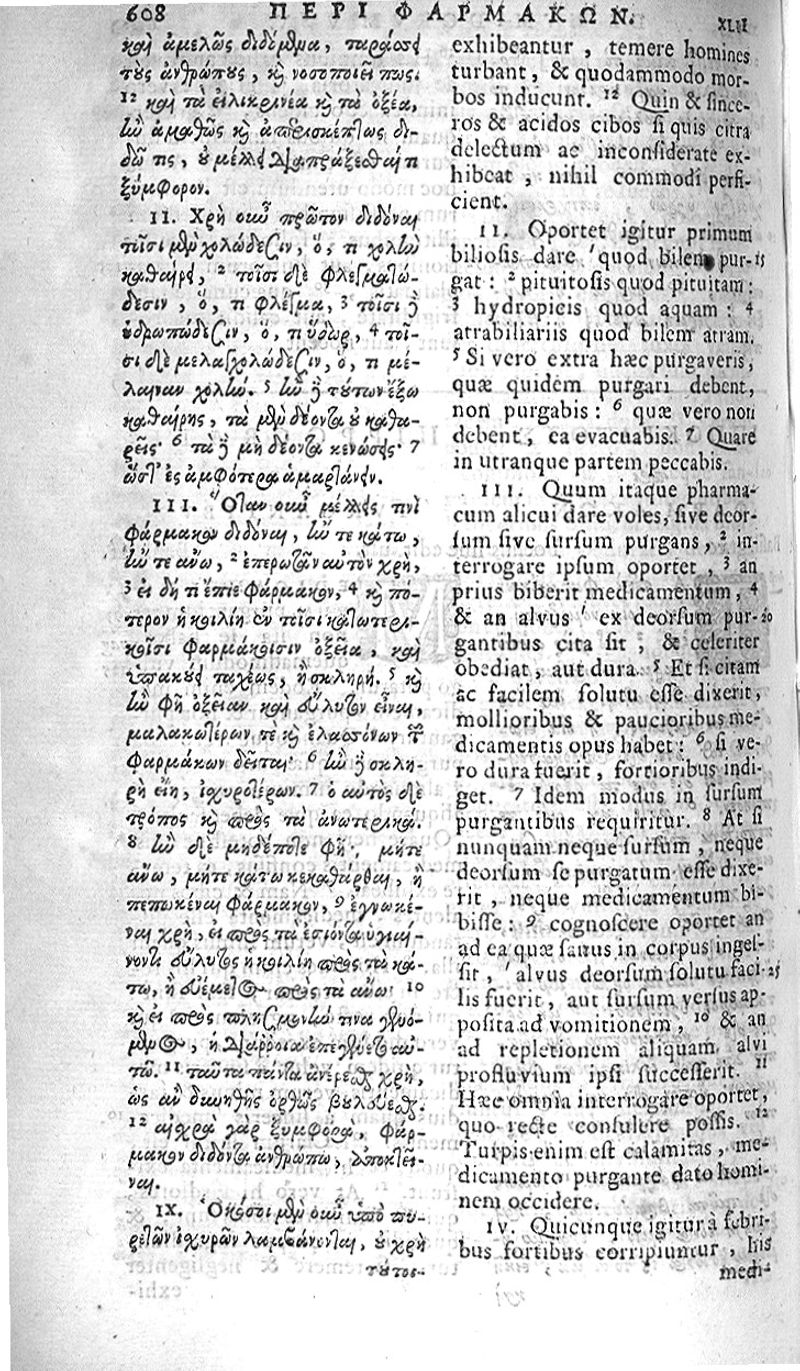 608 ΠΕΡΙ ΦΑΡΜΑΚΩΝ. XLII
καὶ ἀμελῶς διδόμενα, ταράσσει
τοὺς ἀνθρώπους, καὶ νοσοποιεῖ πως.
12 καὶ τὰ εἰλικρινέα καὶ τὰ ὀξέα,
ἢν ἀμαθῶς καὶ ἀπερισκέπτως δι-
δῷ τις, οὐ μέλλει διαπράξεσθαί τι
ξύμφορον.
II. Χρὴ οὖν πρῶτον διδόναι
τοῖσι μὲν χολώδεσιν, ὅ, τι χολὴν
καθαίρει, 2 τοῖσι δὲ φλεγματώ-
δεσιν, ὅ, τι φλέγμα, 3 τοῖσι δὲ
ὑδρωπώδεσιν, ὅ, τι ὕδωρ, 4 τοῖ-
σι δὲ μελαγχολώδεσιν, ὅ, τι μέ-
λαιναν χολήν. 5 ἢν δὲ τούτων ἔξω
καθαίρης, τὰ μὲν δέοντα οὐ καθα-
ρεῖς· 6 τὰ δὲ μὴ δέοντα κενώσεις· 7
ὥστ' ἐς ἀμφότερα ἁμαρτάνειν.
III. Ὅταν οὖν μέλλῃς τινὶ
φάρμακον διδόναι, ἤν τε κάτω,
ἤν τε ἄνω, 2 ἐπερωτᾷν αὐτὸν χρὴ,
3 εἰ δή τι ἔπιε φάρμακον, 4 καὶ πό-
τερον ἡ κοιλίη ἐν τοῖσι κατωτερι-
κοῖσι φαρμάκοισιν ὀξεῖα, καὶ
ὑπακούει ταχέως, ἢ σκληρή. 5 καὶ
ἢν φῇ ὀξεῖαν καὶ εὔλυτον εἶναι,
μαλακωτέρων τε καὶ ἐλασσόνων τῶν
φαρμάκων δεῖται· 6 ἢν δὲ σκλη-
ρὴ εἴη, ἰσχυροτέρων. 7 ὁ αὐτὸς δὲ
τρόπος καὶ πρὸς τὰ ἀνωτερικά.
8 ἢν δὲ μηδέποτε φῇ, μήτε
ἄνω, μήτε κάτω κεκαθάρθαι, ἢ
πεπωκέναι φάρμακον, 9 ἐγνωκέ-
ναι χρὴ, εἰ πρὸς τὰ ἐσιόντα ὑγιαί-
νοντι εὔλυτος ἡ κοιλίη πρὸς τὰ κά-
τω, ἢ εὐεμετος πρὸς τὰ ἄνω· 10
καὶ εἰ πρὸς πλησμονήν τινα γενό-
μενος, ἡ διάρροια ἐπεγένετο αὐ-
τῷ. 11 ταῦτα πάντα ἀνέρεσθαι χρὴ,
ὡς ἂν δυνηθῇς ὀρθῶς βουλεύεσθαι.
12 αἰσχρὰ γὰρ ξυμφορὰ, φάρ-
μακον διδόντα ἀνθρώπῳ, ἀποκτεῖ-
ναι.
IX. Ὁκόσοι μὲν οὖν ὑπὸ πυ-
ρετῶν ἰσχυρῶν λαμβάνονται, οὐ χρὴ
τούτος-
exhibeantur, temere homines
turbant, & quodammodo mor-
bos inducunt. 12 Quin & since-
ros & acidos cibos si quis citra
delectum ac inconsiderate ex-
hibeat, nihil commodi perfi-
cient.
II. Oportet igitur primum
biliosis dare ' quod bilem pur- 15
gat: 2 pituitosis quod pituitam:
3 hydropicis quod aquam: 4
atrabiliariis quod bilem atram.
5 Si vero extra hæc purgaveris,
quæ quidem purgari debent,
non purgabis: 6 quæ vero non
debent, ea evacuabis. 7 Quare
in utranque partem peccabis.
III. Quum itaque pharma-
cum alicui dare voles, sive deor-
sum sive sursum purgans, 2 in-
terrogare ipsum oportet, 3 an
prius biberit medicamentum, 4
& an alvus ' ex deorsum pur- 20
gantibus cita sit, & celeriter
obediat, aut dura. 5 Et si citam
ac facilem solutu esse dixerit,
mollioribus & paucioribus me-
dicamentis opus habet: 6 si ve-
ro dura fuerit, fortioribus indi-
get. 7 Idem modus in sursum
purgantibus requiritur. 8 At si
nunquam neque sursum, neque
deorsum se purgatum esse dixe-
rit, neque medicamentum bi-
bisse: 9 cognoscere oportet an
ad ea quæ sanus in corpus inges-
sit, ' alvus deorsum solutu faci- 25
lis fuerit, aut sursum versus ap-
posita ad vomitionem, 10 & an
ad repletionem aliquam alvi
profluvium ipsi successerit. 11
Hæc omnia interrogare oportet,
quo recte consulere possis. 12
Turpis enim est calamitas, me-
dicamento purgante dato homi-
nem occidere.
IV. Quicunque igitur à febri-
bus fortibus corripiuntur, his
medi-